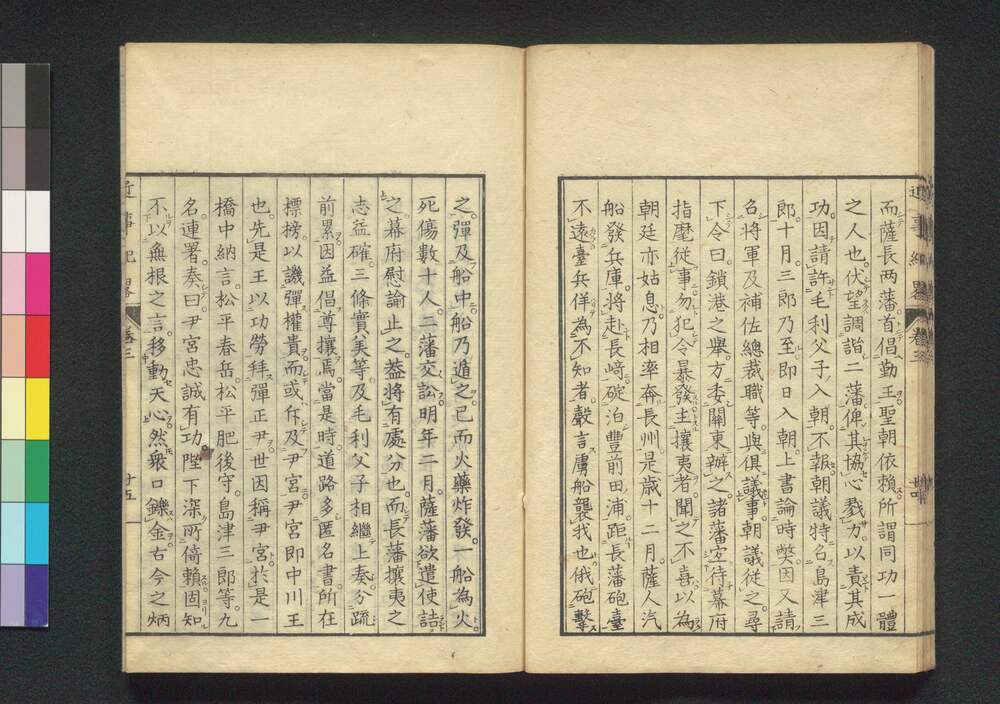 而薩長両藩首倡勤王聖朝依賴所謂同功一體
之人也伏望調諧二藩俾其協心戮力以責其成
功因請許毛利父子入朝不報朝議特名島津三
郎十月三郎乃至即日入朝上書論時獘因又請
名將軍及補佐總裁職等與俱議事朝議從之尋
下令曰鎖港之舉方委關東辦之諸藩宜待幕府
指麾從事勿犯令暴發主攘夷者聞之不喜以為
朝廷亦姑息乃相率奔長州是歲十二月薩人汽
船發兵庫將赴長崎碇泊豐前田浦距長藩砲臺
不遠臺兵佯為不知者聲言虜船襲我也俄砲擊
近事紀畧 卷三 廿四
之彈及船中船乃遁之已而火藥炸發一船為火
死傷數十人二藩交訟明年二月薩藩欲遣使詰
之幕府慰諭止之葢將有處分也而長藩攘夷之
志益確三條實美等及毛利父子相繼上奏分疏
前累因益倡尊攘焉當是時道路多匿名書所在
標榜以譏彈權貴而或斥及尹宮尹宮即中川王
也先是王以功勞拜彈正尹世因稱尹宮於是一
橋中納言松平春岳松平肥後守島津三郎等九
名連署奏曰尹宮忠誠有功陛下深所倚賴固知
不以無根之言移動天心然衆口鑠金古今之炳
近事紀畧 卷三 廿五